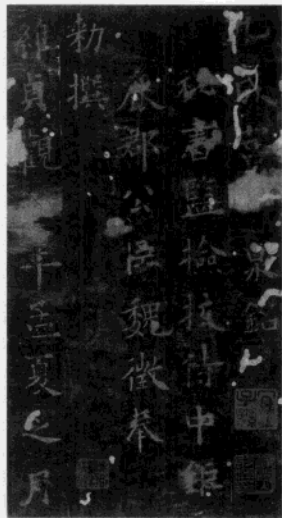 九成宮泉銘
秘書監檢挍侍中鉅
鹿郡公臣魏徵奉
勅撰
維貞觀年孟夏之月